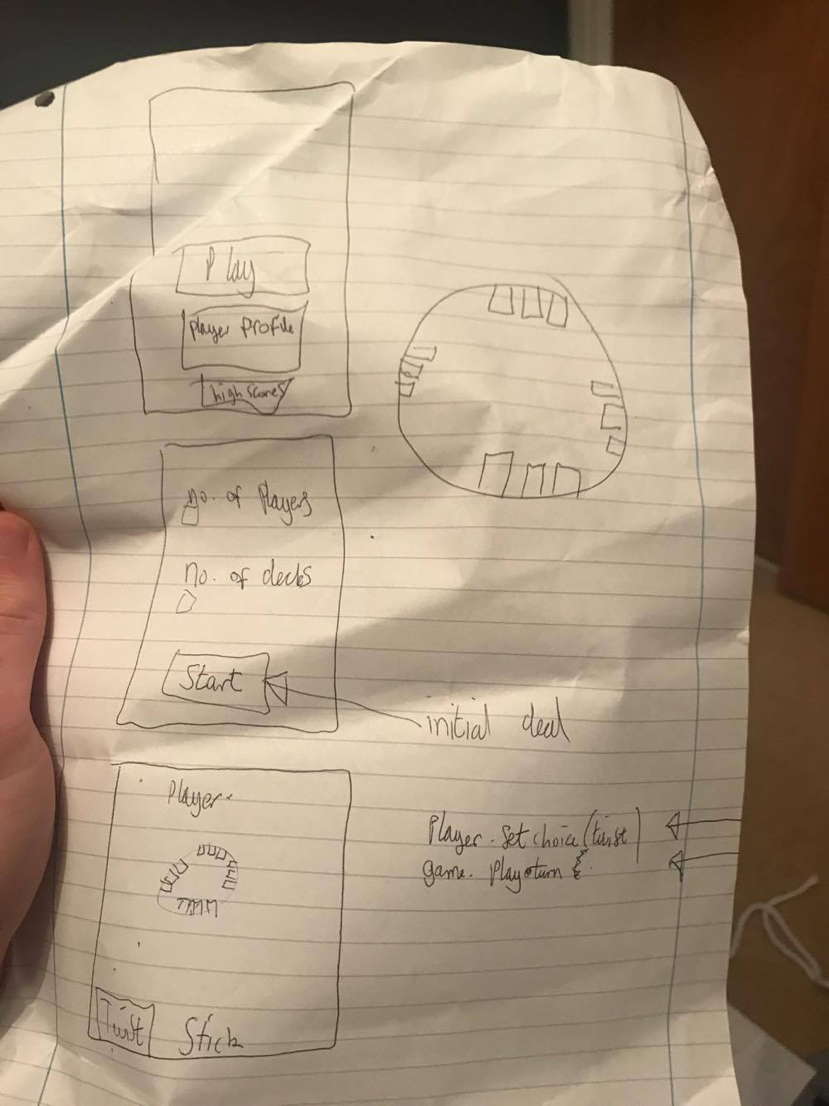 Play
player profile
high scores
no. of Players
no. of decks
Start
initial deal
Player.
Player. set choice (twist)
game. play turn {
Twist
Stick